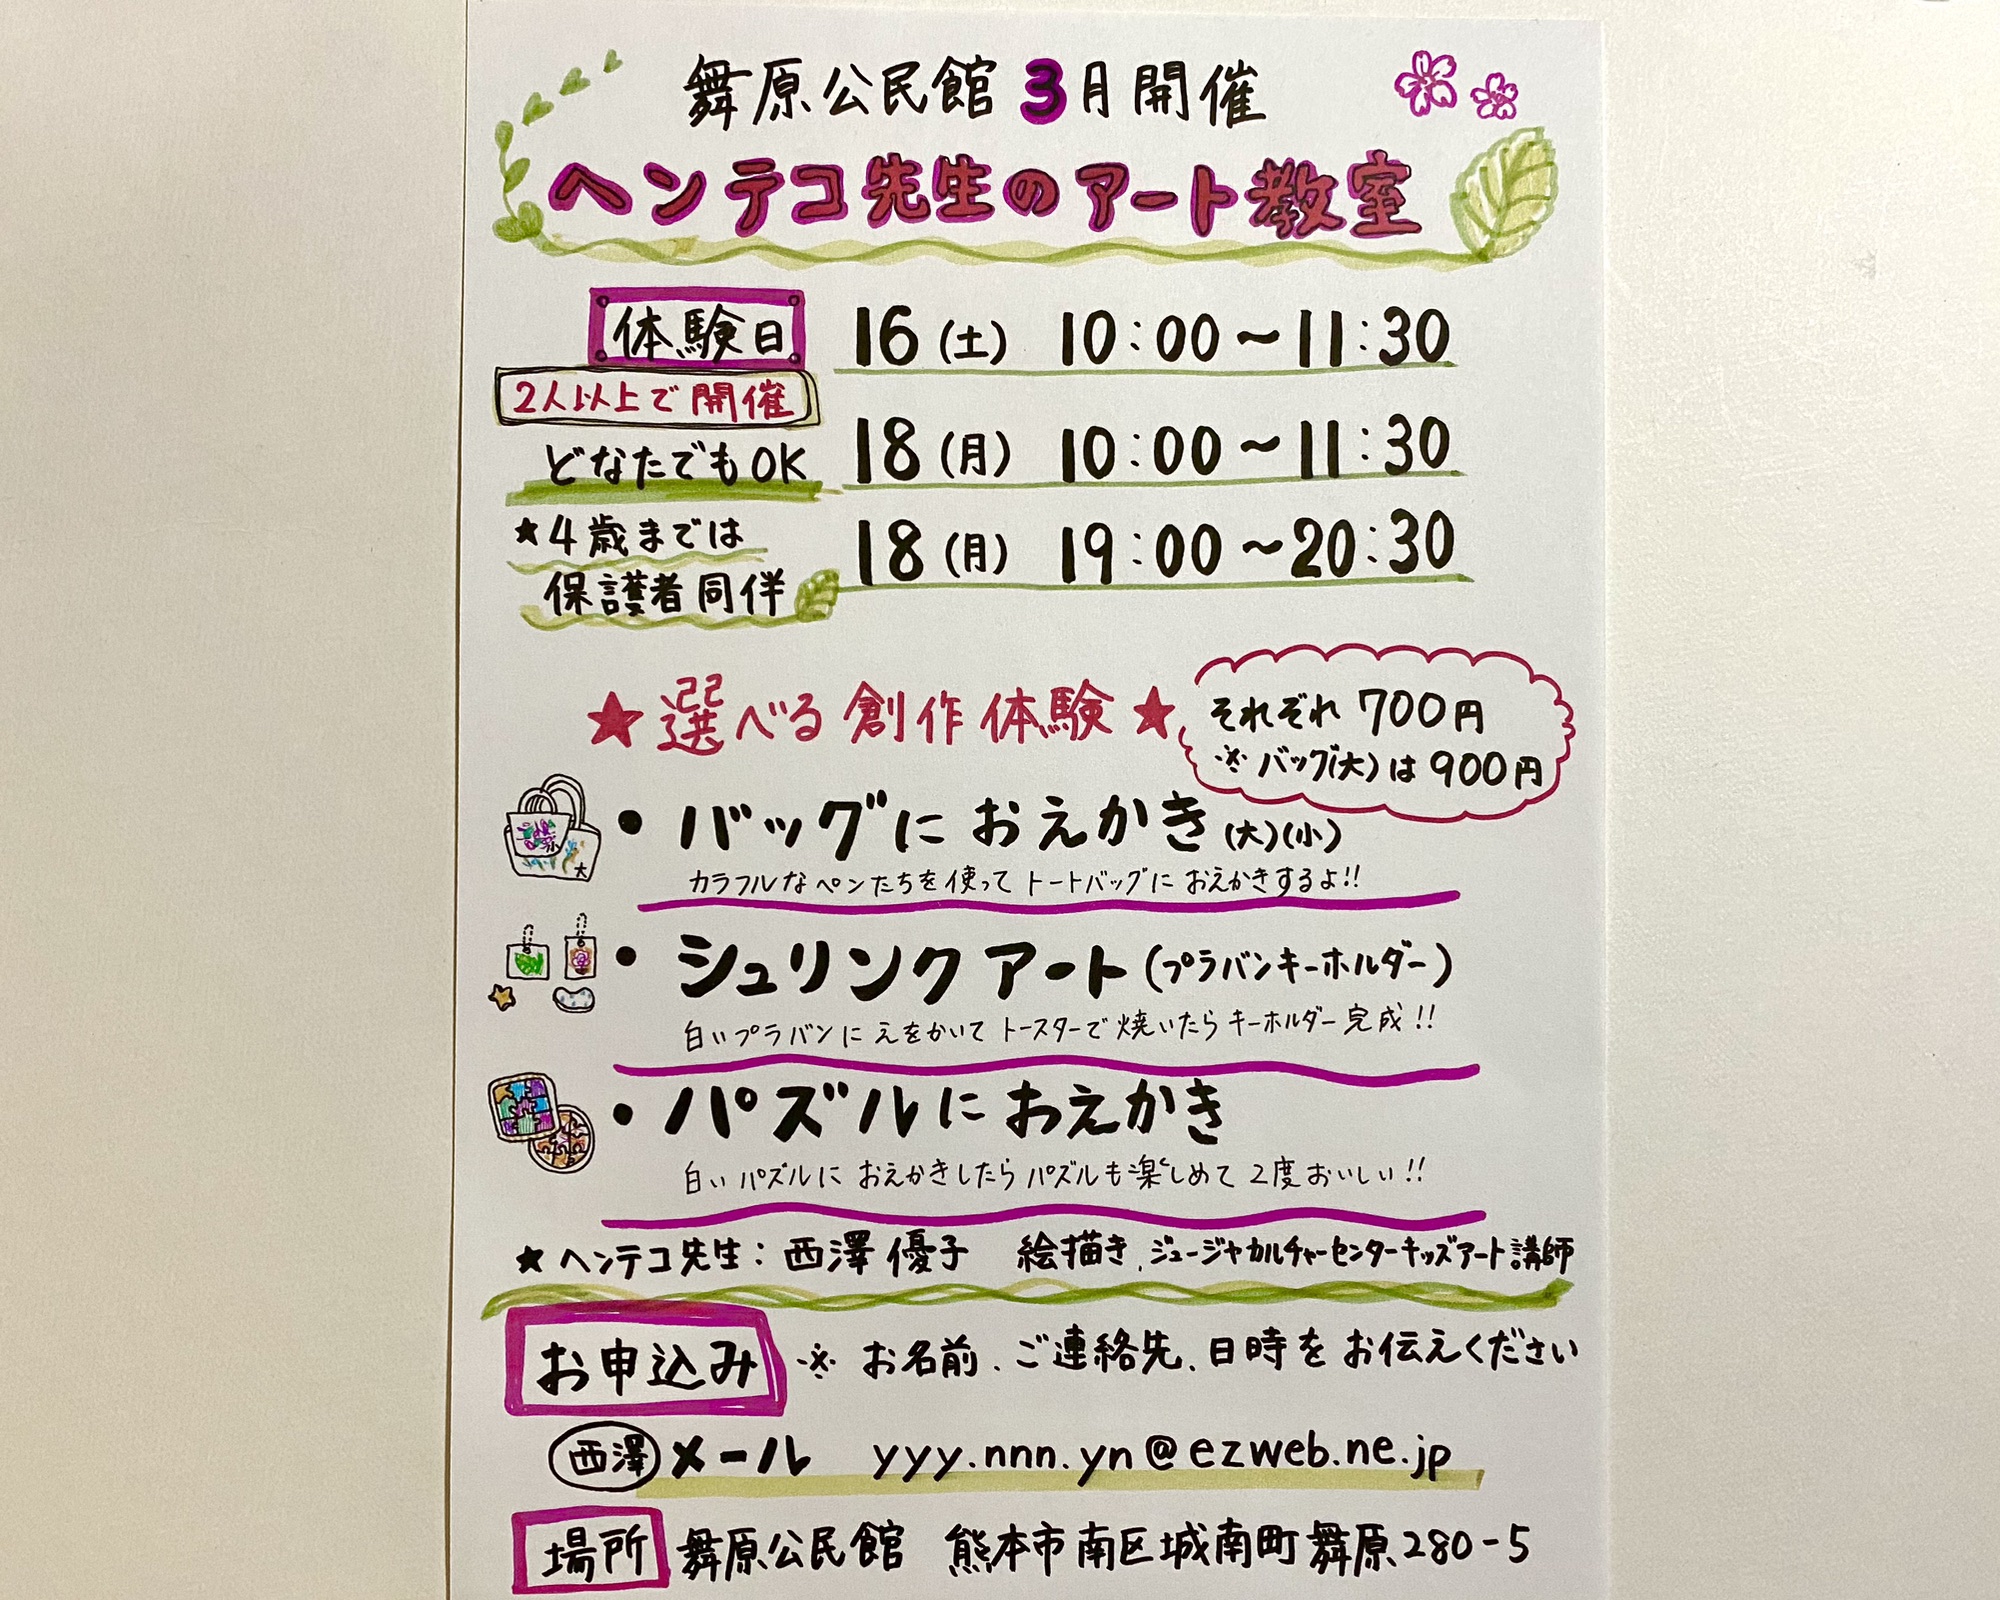 舞原公民館 3月開催
ヘンテコ先生のアート教室
体験日
2人以上で開催
どなたでもOK
★4歳までは
保護者同伴
16(土) 10:00〜11:30
18(月) 10:00〜11:30
18(月) 19:00〜20:30
★選べる創作体験★
それぞれ700円
※バッグ(大)は900円
・バッグにおえかき(大)(小)
カラフルなペンたちを使ってトートバッグにおえかきするよ!!
小
大
・シュリンクアート(プラバンキーホルダー)
白いプラバンにえをかいてトースターで焼いたらキーホルダー完成!!
・パズルにおえかき
白いパズルにおえかきしたらパズルも楽しめて2度おいしい!!
★ヘンテコ先生:西澤優子 絵描き、ジュージヤカルチャーセンターキッズアート講師
お申込み ※お名前、ご連絡先、日時をお伝えください
西澤 メール yyy.nnn.yn@ezweb.ne.jp
場所 舞原公民館 熊本市南区城南町舞原280-5